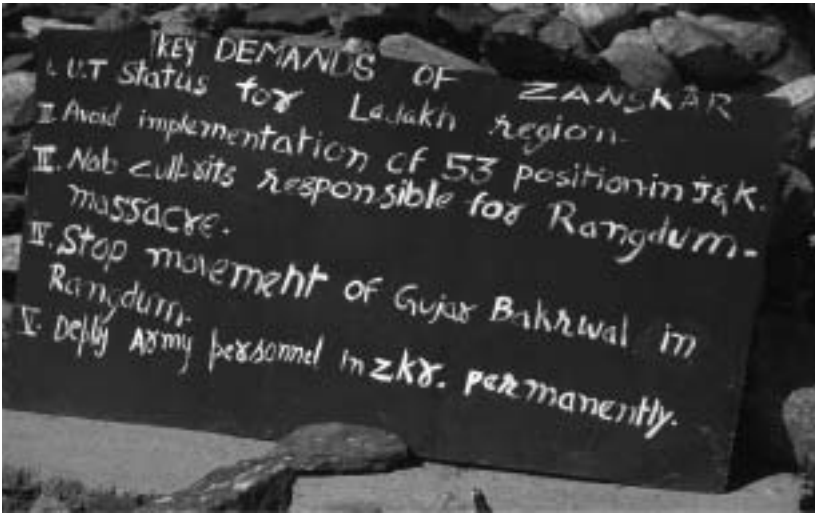 KEY DEMANDS OF ZANSKAR
I. U.T Status for Ladakh region.
II. Avoid implementation of 53 position in J&K.
III. Nab culprits responsible for Rangdum-
massacre.
IV. Stop movement of Gujar Bakrwal in
Rangdum.
V. Deploy Army personnel in zkr. permanently.